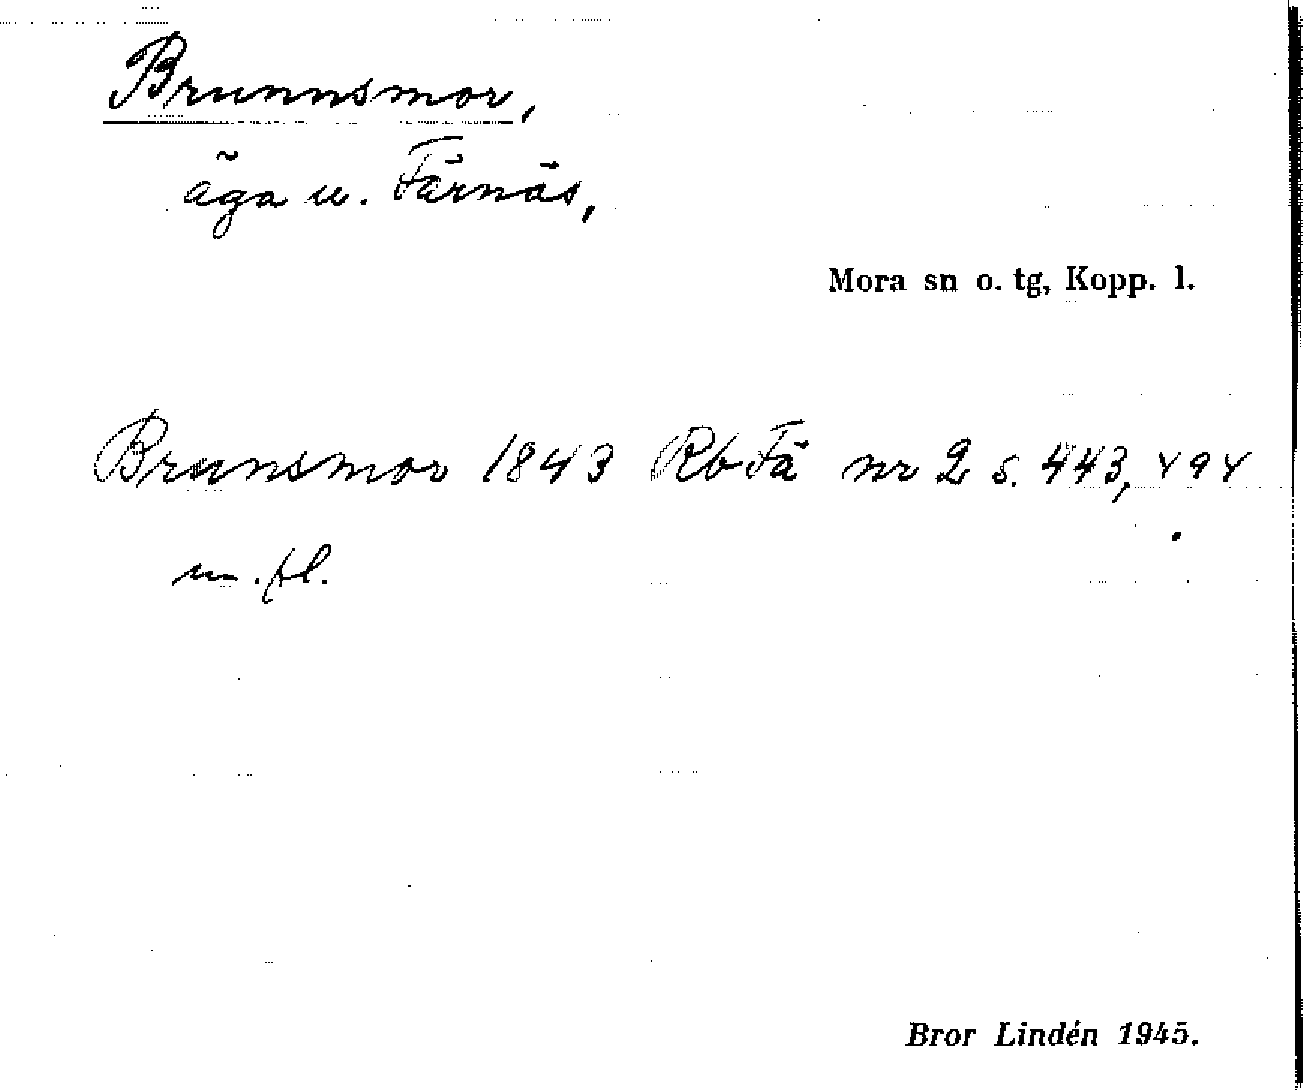 Brunnsmor,
äga u. Färnäs,
Mora sn o. tg, Kopp. l.
Brunsmor 1843 Rb Fä nr 2 s. 443, 494
m.fl.
Bror Lindén 1945.